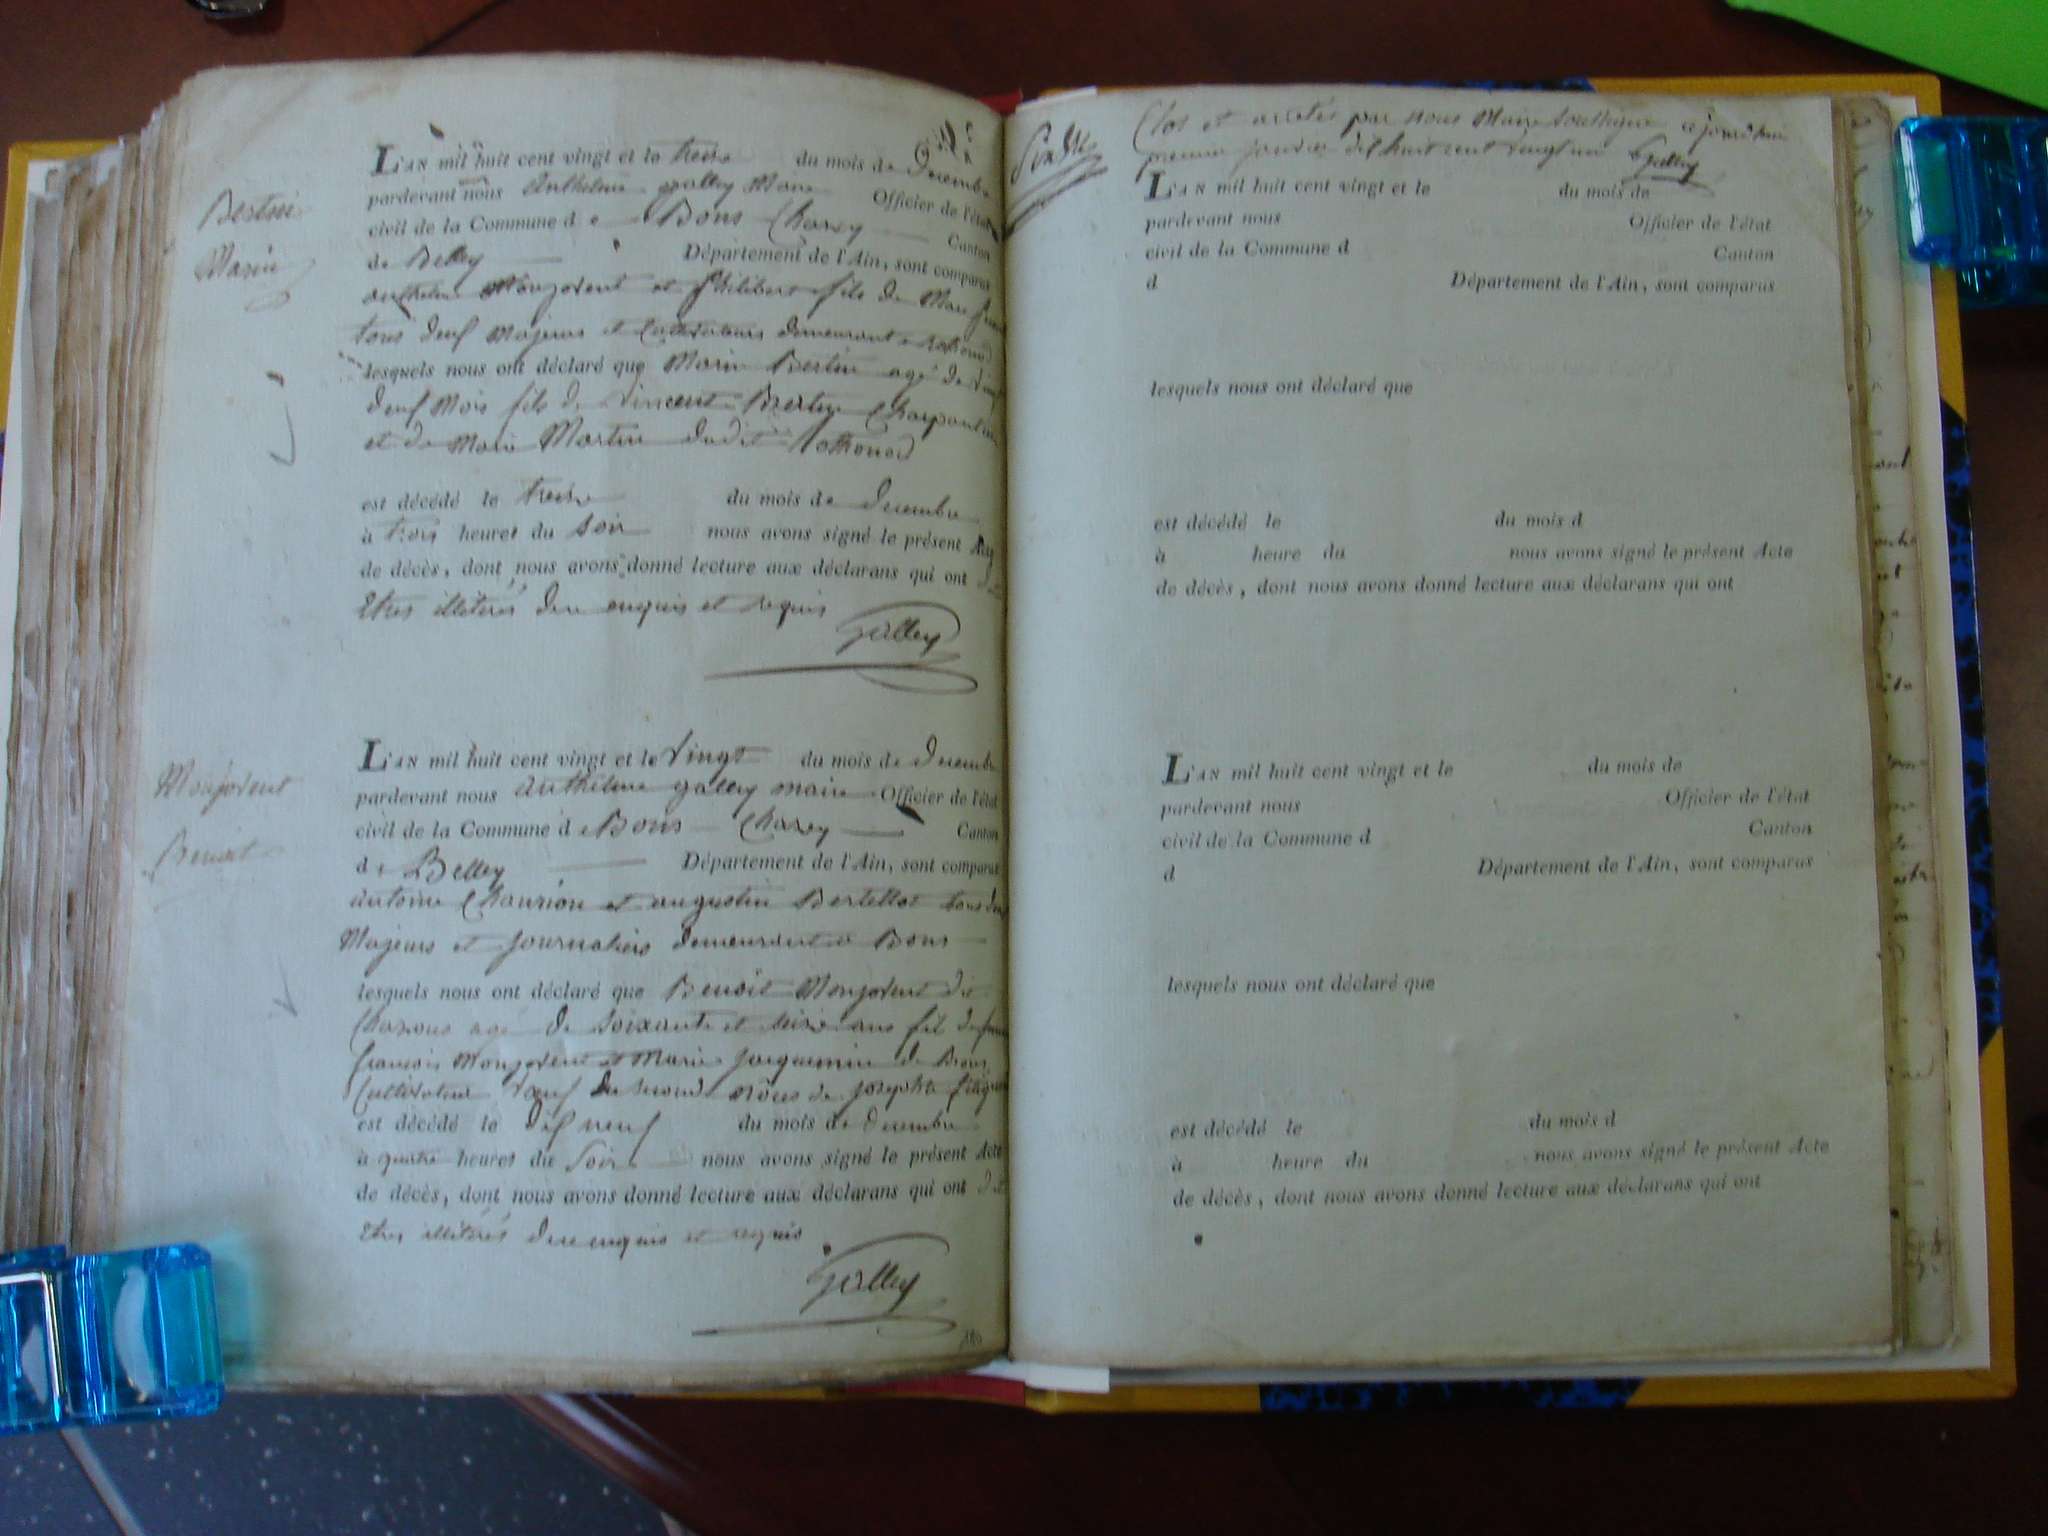 Bertin
Marin
L'an mil huit cent vingt et le treize du mois de Decembre
pardevant nous Anthelme galley Maire Officier de l'état
civil de la Commune d e Bons Charey Canton
de Belley Département de l'Ain, sont comparus
anthelme Monjovent et Philibert fils de Marc
tous deux Majeurs et Cultivateurs demeurant a
lesquels nous ont déclaré que Marin Bertin agé de vingt
deux Mois fils de Vincent Bertin Charpentier
et de Marie Martin dudit
est décédé le treize du mois de decembre
à trois heures du soir nous avons signé le présent Acte
de décès, dont nous avons donné lecture aux déclarans qui ont dit
Etres illiterés de ce enquis et requis
Galley
Monjovent
Benoit
L'an mil huit cent vingt et le vingt du mois de decembre
pardevant nous Anthelme galley maire Officier de l'état
civil de la Commune d e Bons Charey Canton
d e Belley Département de l'Ain, sont comparus
antoine et augustin Bertellot tous deux
Majeurs et Journaliers demeurant a Bons
lesquels nous ont déclaré que Benoit Monjovent dit
agé de soixante et seize ans fil de feu
francois Monjovent et Marie Jacquemin de Bons
Cultivateur veuf de second nôces de Josephte
est décédé le dix neuf du mois de decembre
à quatre heures du Soir nous avons signé le présent Acte
de décès, dont nous avons donné lecture aux déclarans qui ont dit
Etres illiterés de ce enquis et requis
Galley
Clos et arretés par nous Maire soussigné ajourd'hui
premier janvier dix huit cent vingt un Galley
L'an mil huit cent vingt et le du mois de
pardevant nous Officier de l'état
civil de la Commune d Canton
d Département de l'Ain, sont comparus
lesquels nous ont déclaré que
est décédé le du mois d
à heure du nous avons signé le présent Acte
de décès, dont nous avons donné lecture aux déclarans qui ont
L'an mil huit cent vingt et le du mois de
pardevant nous Officier de l'état
civil de la Commune d Canton
d Département de l'Ain, sont comparus
lesquels nous ont déclaré que
est décédé le du mois d
à heure du nous avons signé le présent Acte
de décès, dont nous avons donné lecture aux déclarans qui ont